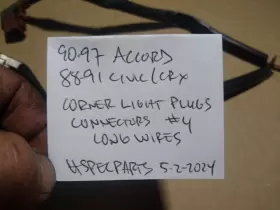 90-97 ACCORD
88-91 CIVIC/CRX
CORNER LIGHT PLUGS
CONNECTORS #4
LONG WIRES
HSPECPARTS 5-2-2024